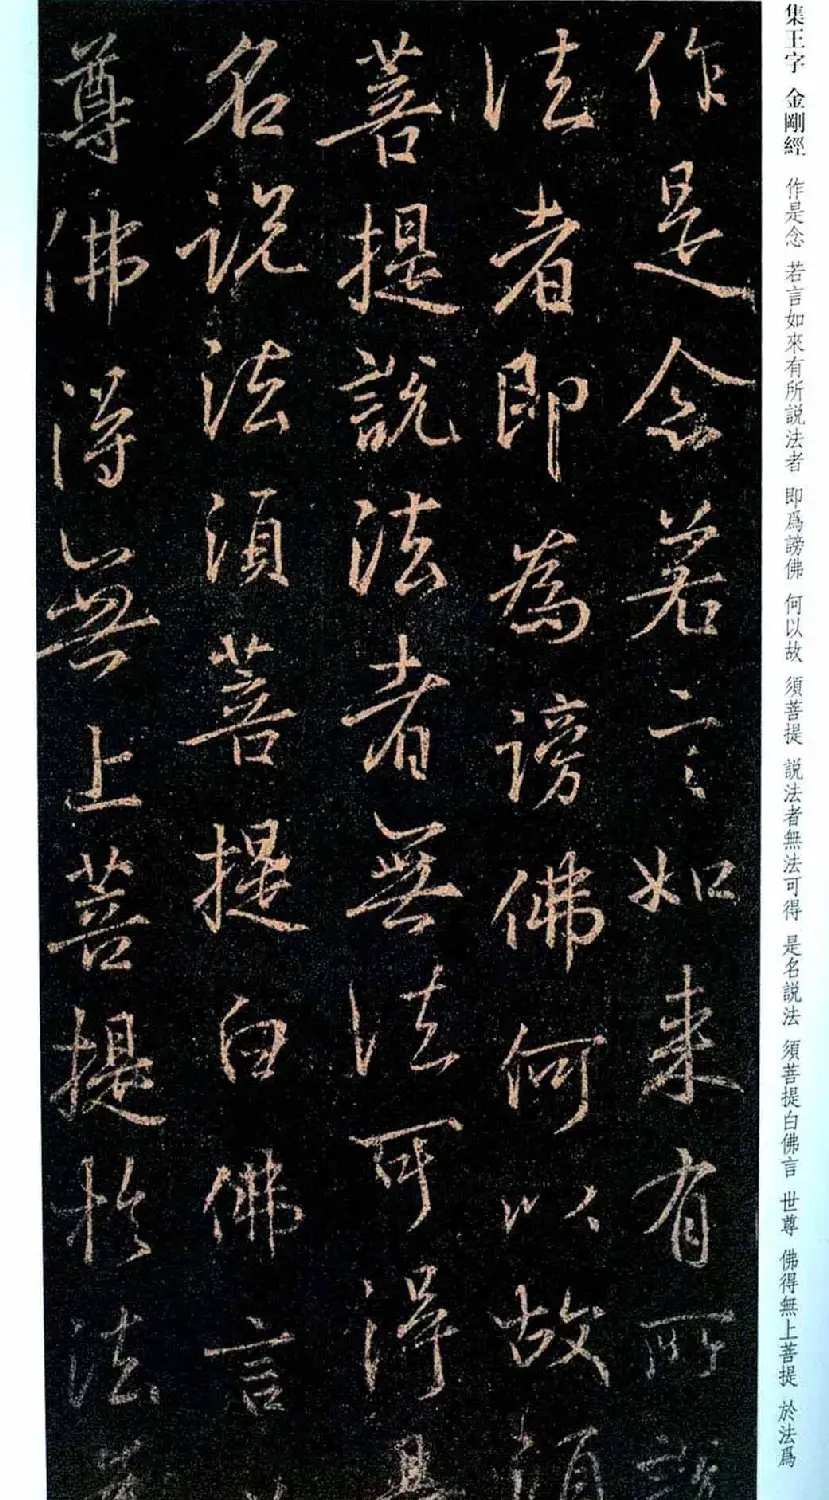 集王字 金剛經 作是念 若言如來有所説法者 即爲謗佛 何以故 須菩提 説法者無法可得 是名説法 須菩提白佛言 世尊 佛得無上菩提 於法爲
作是念若言如来有所說
法者即為謗佛何以故須
菩提說法者無法可得是
名說法須菩提白佛言世
尊佛得無上菩提於法為